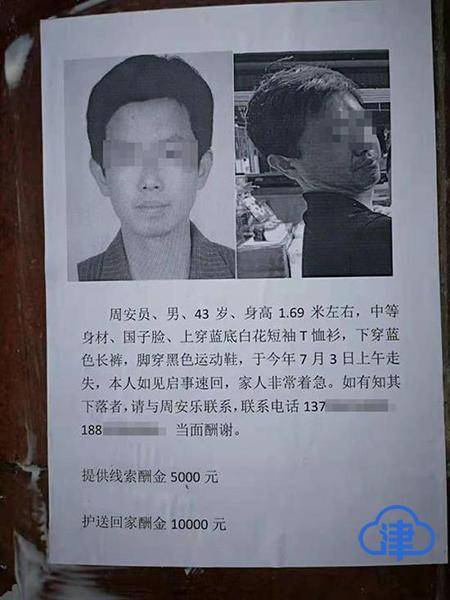 周安员、男、43 岁、身高 1.69 米左右，中等
身材、国子脸、上穿蓝底白花短袖 T 恤衫，下穿蓝
色长裤，脚穿黑色运动鞋，于今年 7 月 3 日上午走
失，本人如见启事速回，家人非常着急。如有知其
下落者，请与周安乐联系，联系电话 137
188 当面酬谢。
提供线索酬金 5000 元
护送回家酬金 10000 元
津